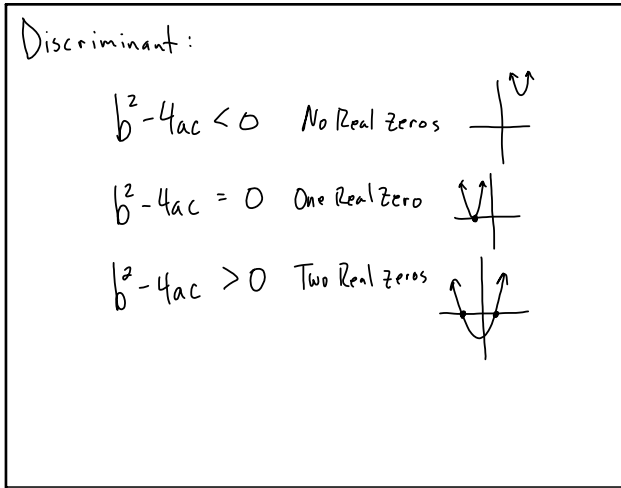 Discriminant:
b² - 4ac < 0 No Real Zeros
b² - 4ac = 0 One Real Zero
b² - 4ac > 0 Two Real Zeros